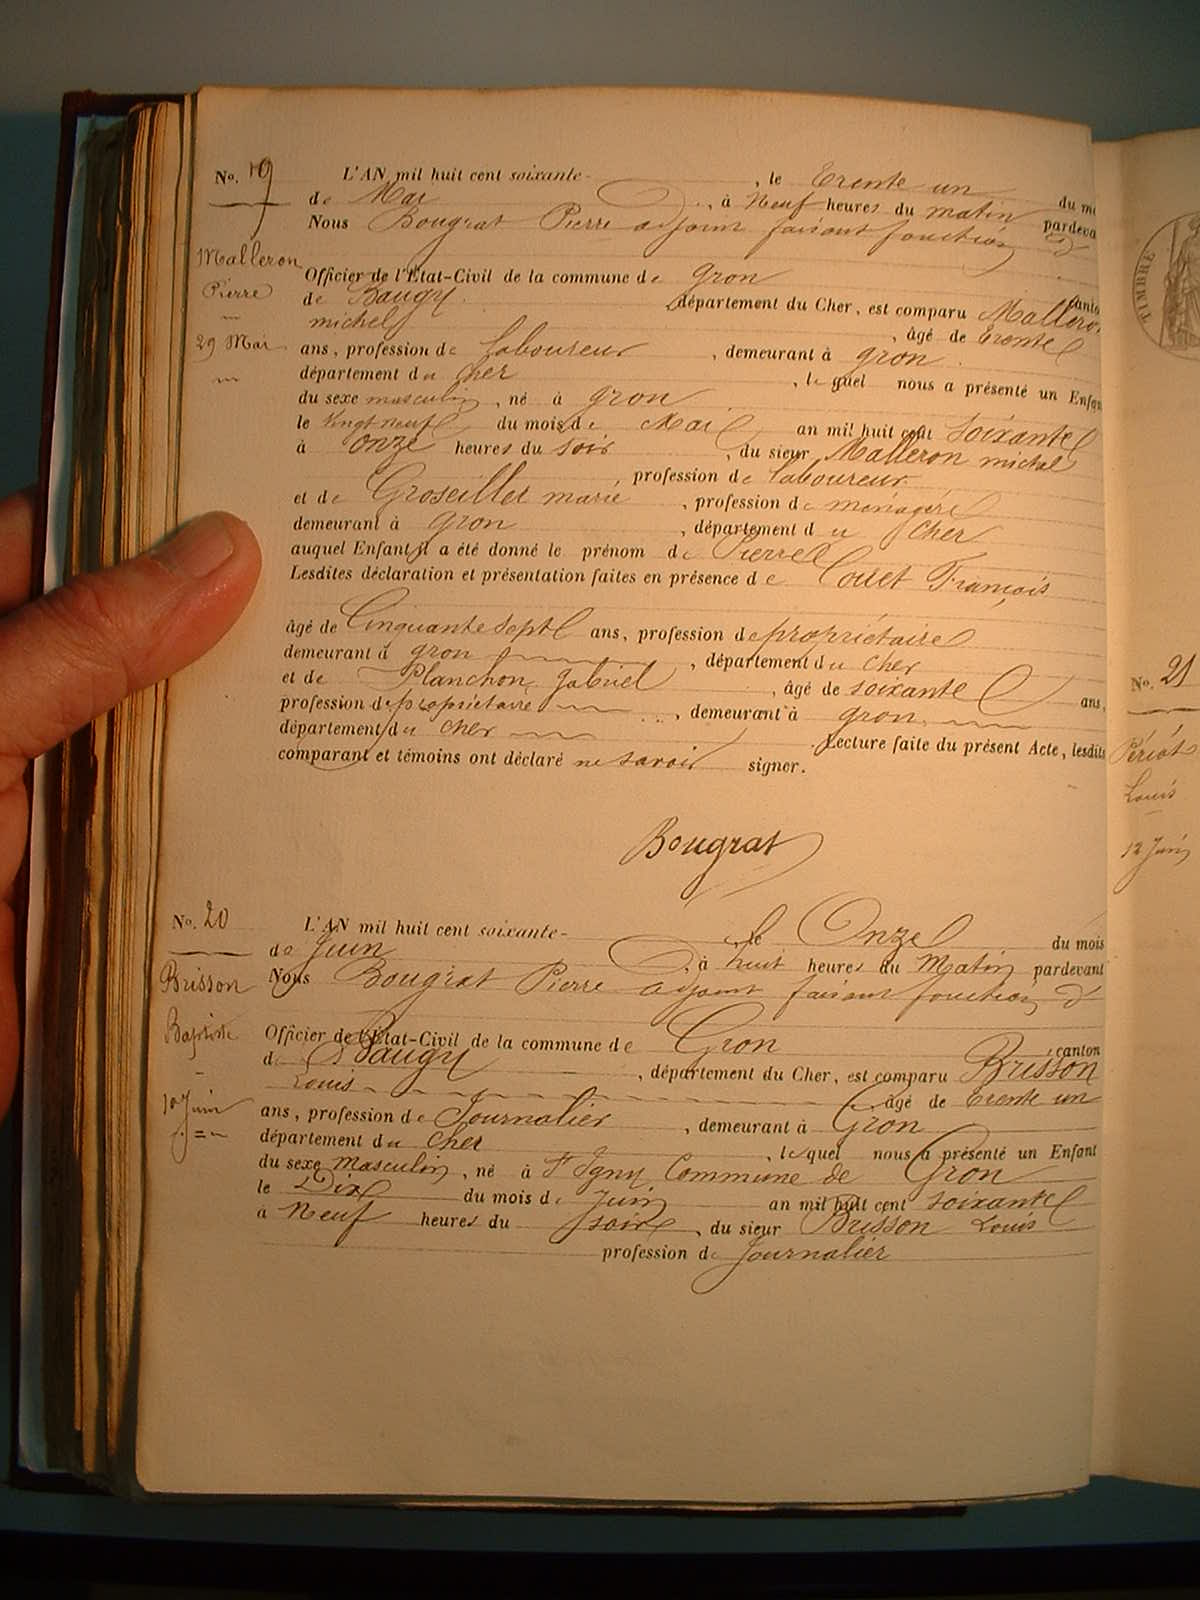 No. 19
L'AN mil huit cent soixante- , le Trente un du m
de Mai , à Neuf heures du matin pardeva
Nous Bougrat Pierre adjoint faisant fonction d'
Malleron
Pierre
29 Mai
Officier de l'État-Civil de la commune de Gron canto
de Baugy département du Cher, est comparu Malleron
michel , âgé de trente
ans, profession de laboureur , demeurant à gron
département du cher , lequel nous a présenté un Enfan
du sexe masculin , né à gron
le vingt neuf du mois de Mai an mil huit cent soixante
à onze heures du soir , du sieur Malleron michel
profession de laboureur
et de Groseiller marie , profession de ménagère
demeurant à gron , département du Cher
auquel Enfant il a été donné le prénom de Pierre
Lesdites déclaration et présentation faites en présence de Couet François
âgé de Cinquante sept ans, profession de propriétaire
demeurant à gron , département du cher
et de Planchon Gabriel , âgé de soixante ans,
profession de propriétaire , demeurant à gron
département du cher Lecture faite du présent Acte, lesdits
comparant et témoins ont déclaré ne savoir signer.
Bougrat
No. 20
L'AN mil huit cent soixante- le Onze du mois
de Juin , à huit heures du Matin pardevant
Nous Bougrat Pierre adjoint faisant fonction d'
Brisson
Baptiste
10 Juin
Officier de l'État-Civil de la commune de Gron canton
de Baugy , département du Cher, est comparu Brisson
Louis âgé de trente un
ans, profession de Journalier , demeurant à Gron
département du Cher , lequel nous a présenté un Enfant
du sexe masculin , né à St Igny Commune de Gron
le Dix du mois de Juin an mil huit cent soixante
à Neuf heures du soir , du sieur Brisson Louis
profession de Journalier
TIMBRE
No. 21
Périot
Louis
12 Juin